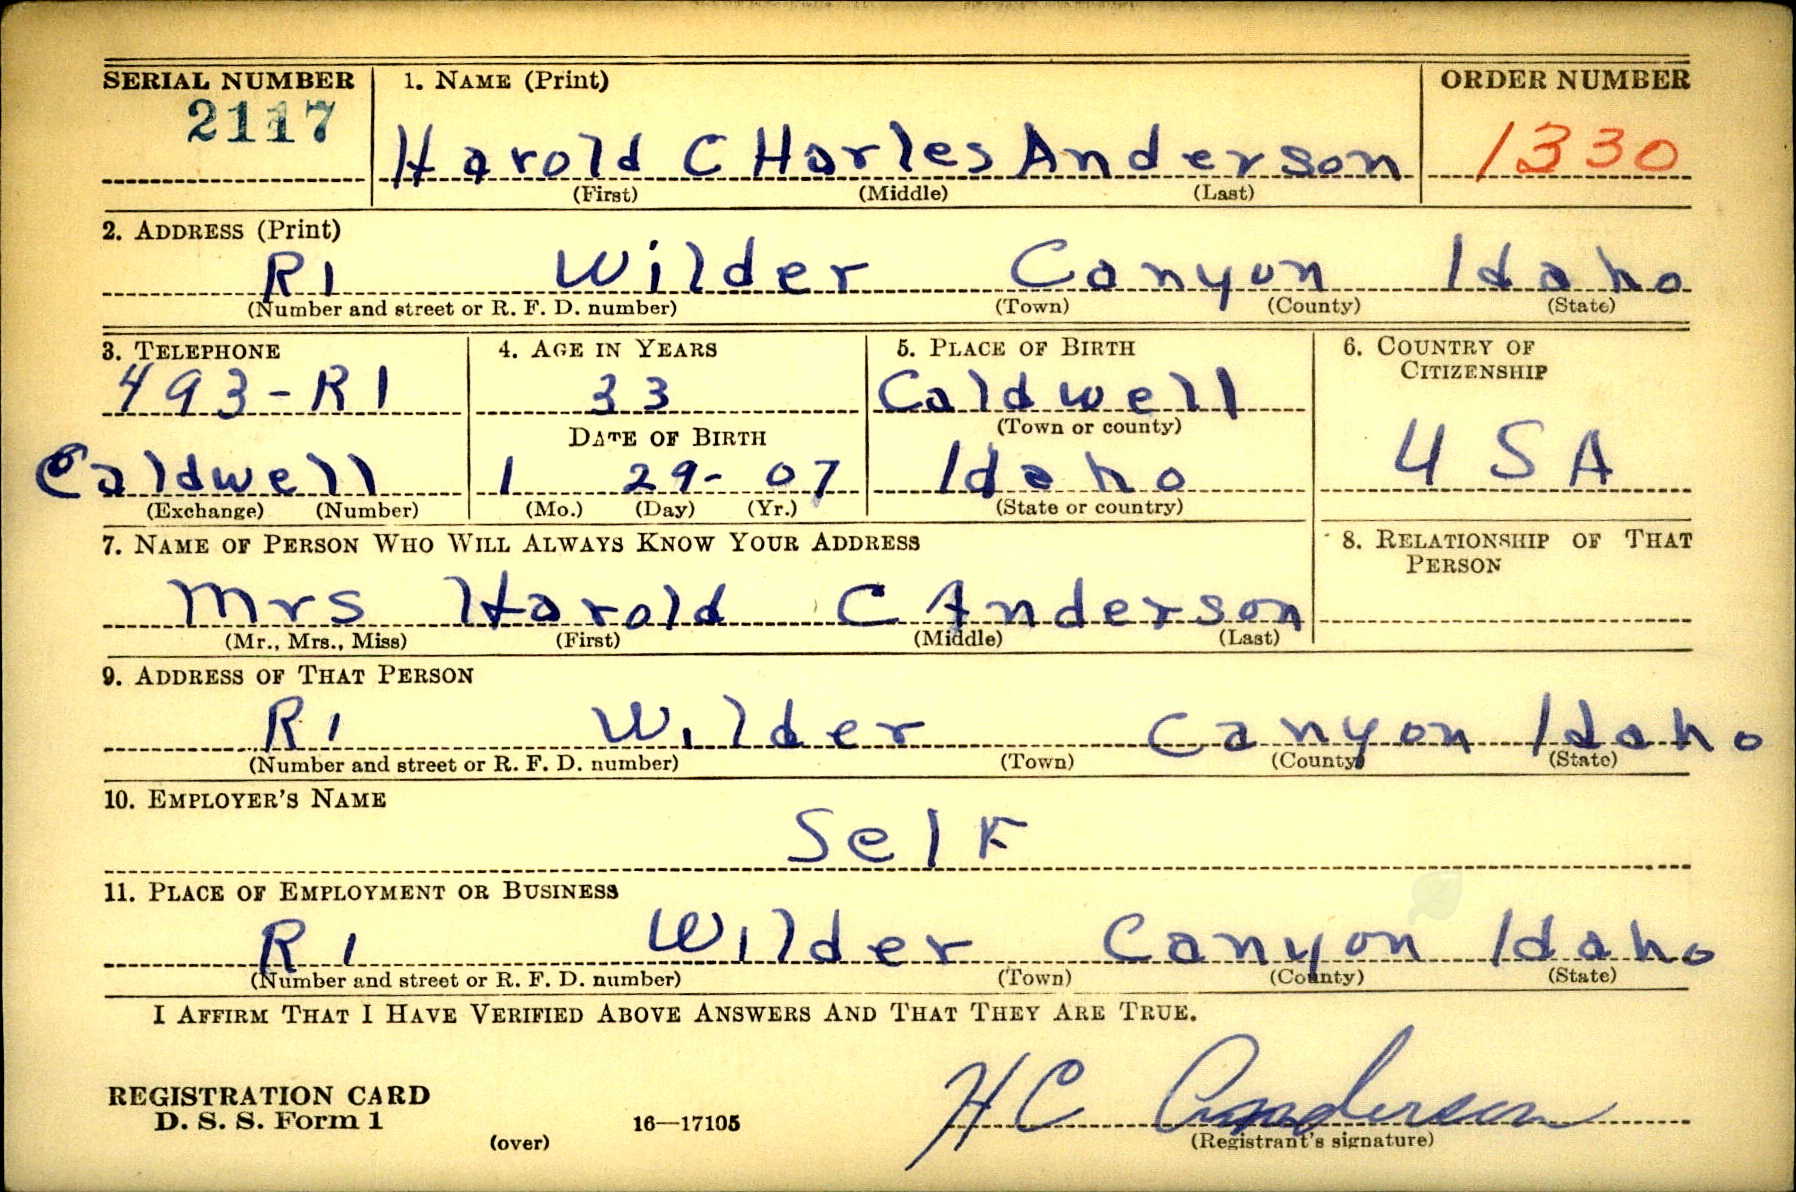 SERIAL NUMBER 1. NAME (Print) ORDER NUMBER
2117
Harold CHarles Anderson 1330
(First) (Middle) (Last)
2. ADDRESS (Print)
R1 Wilder Canyon Idaho
(Number and street or R. F. D. number) (Town) (County) (State)
3. TELEPHONE 4. AGE IN YEARS 5. PLACE OF BIRTH 6. COUNTRY OF CITIZENSHIP
493-R1 33 Caldwell
DATE OF BIRTH (Town or county)
Caldwell 1 29- 07 Idaho USA
(Exchange) (Number) (Mo.) (Day) (Yr.) (State or country)
7. NAME OF PERSON WHO WILL ALWAYS KNOW YOUR ADDRESS 8. RELATIONSHIP OF THAT PERSON
Mrs Harold C Anderson
(Mr., Mrs., Miss) (First) (Middle) (Last)
9. ADDRESS OF THAT PERSON
R1 Wilder Canyon Idaho
(Number and street or R. F. D. number) (Town) (County) (State)
10. EMPLOYER'S NAME
Self
11. PLACE OF EMPLOYMENT OR BUSINESS
R1 Wilder Canyon Idaho
(Number and street or R. F. D. number) (Town) (County) (State)
I AFFIRM THAT I HAVE VERIFIED ABOVE ANSWERS AND THAT THEY ARE TRUE.
REGISTRATION CARD
D. S. S. Form 1 16—17105 H C Anderson
(over) (Registrant's signature)